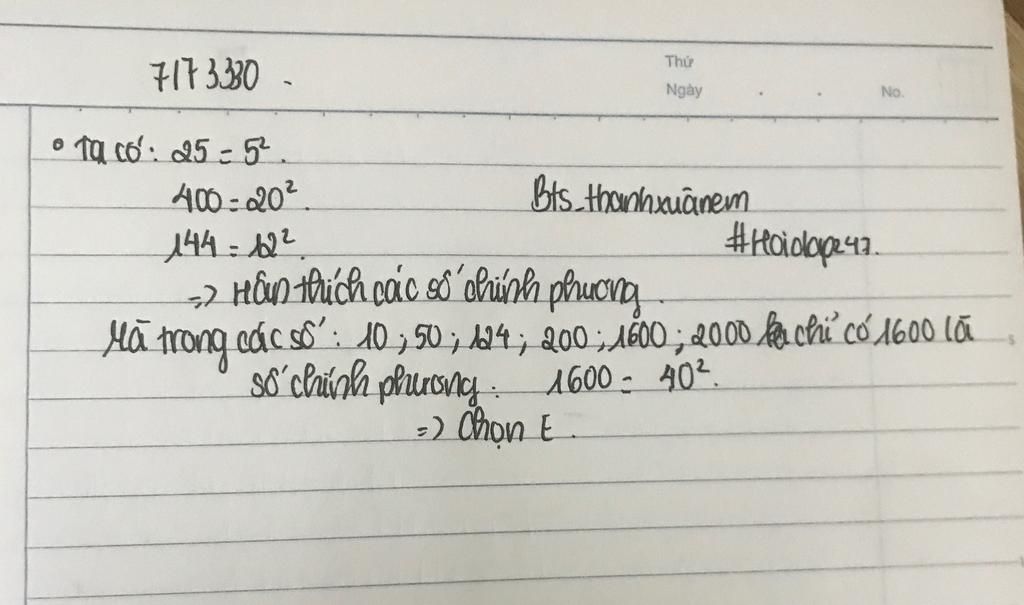 7173330.
Thứ
Ngày . . No.
Ta có: 25 = 5².
400 = 20².
Bts_thanhxuânem
144 = 12².
#Hoidap247.
=> Hân thích các số chính phương.
Mà trong các số: 10; 50; 124; 200; 1600; 2000 chỉ có 1600 là
số chính phương. 1600 = 40².
=> Chọn E.